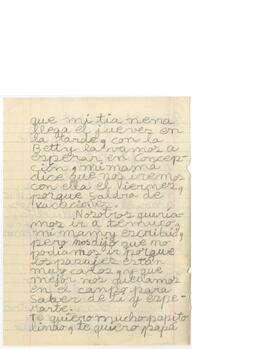 que mi tia nena
llega el jueves en
la tarde, con la
Betty la vamos a
esperar en concep-
ción, mi mama
dice que nos iremos
con ella el viernes,
porque saldra de
vacaciones.
Nosotros queria-
mos ir a temuco,
mi mami escribió,
pero nos dijo que no
podiamos ir porque
los pasajes están
muy carlos, y que
mejor nos quedamos
en el campo para
saber de ti y espe-
rarte.
te quiero mucho papito
lindo, te quiero papá